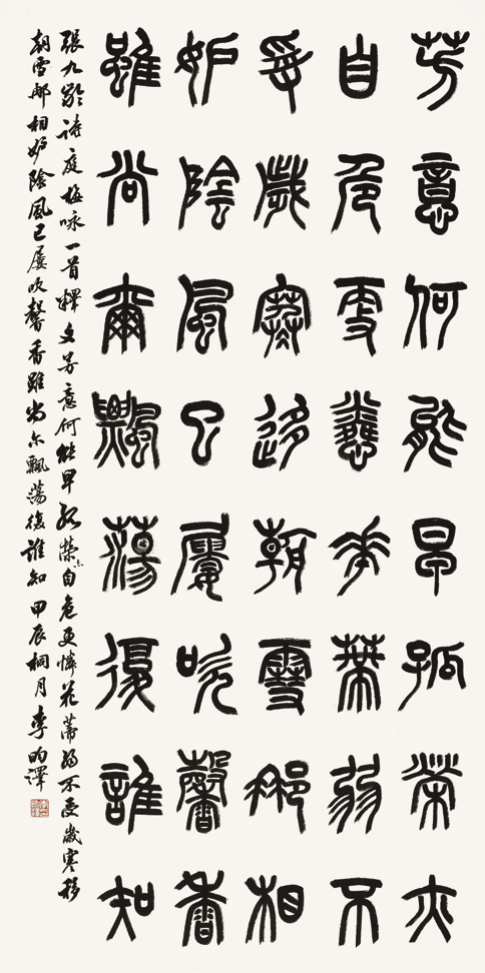 芳意何能早孤榮亦
自危更憐花蒂弱不
受歲寒移朝雪那相
妒陰風已屢吹馨香
雖尚爾飄蕩復誰知
張九齡詩庭梅咏一首釋文芳意何能早孤榮亦自危更憐花蒂弱不受歲寒移
朝雪那相妒陰風已屢吹馨香雖尚尔飄蕩復誰知甲辰桐月李昀譯